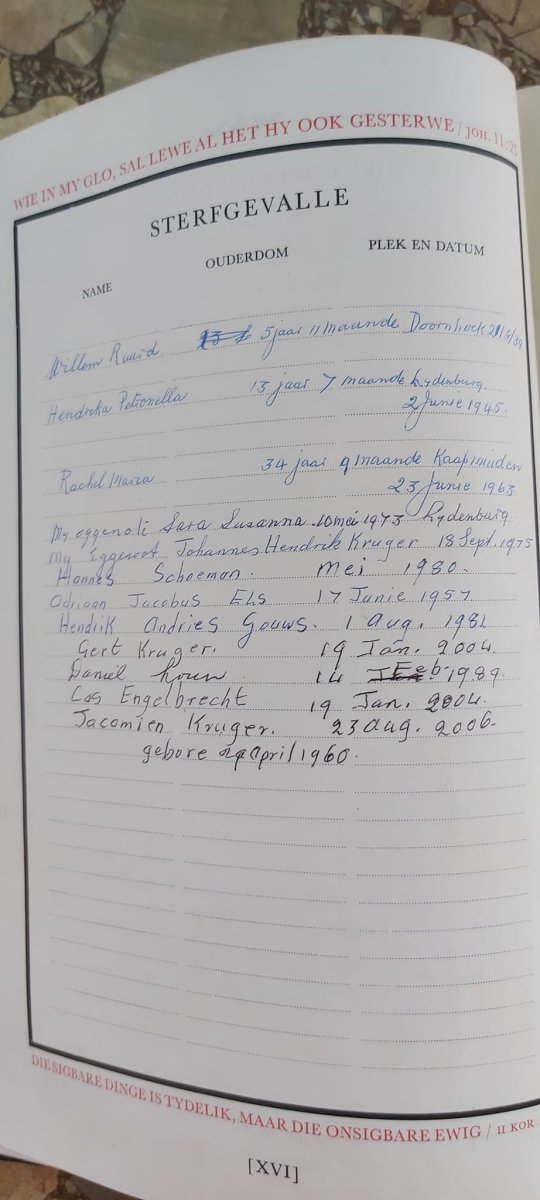 WIE IN MY GLO, SAL LEWE AL HET HY OOK GESTERWE / JOH. 11:25
STERFGEVALLE
NAME OUDERDOM PLEK EN DATUM
Willem Ruurd 5 jaar 11 maande Doornhoek
Hendrika Petronella 13 jaar 7 maande Lydenburg
2 Junie 1945.
Rachel Maria 34 jaar 9 maande Kaapmuiden
23 Junie 1963
My eggenote Sara Susanna 10 mei 1973 Lydenburg
My Eggenoot Johannes Hendrik Kruger 18 Sept. 1975
Hannes Schoeman. Mei 1980.
Adriaan Jacobus Els 17 Junie 1957
Hendrik Andries Gouws. 1 Aug. 1981
Gert Kruger. 19 Jan. 2004.
Daniel 14 Feb. 1989.
Cas Engelbrecht 19 Jan. 2004.
Jacomien Kruger. 23 Aug. 2006.
gebore April 1960.
DIE SIGBARE DINGE IS TYDELIK, MAAR DIE ONSIGBARE EWIG / II KOR
[XVI]